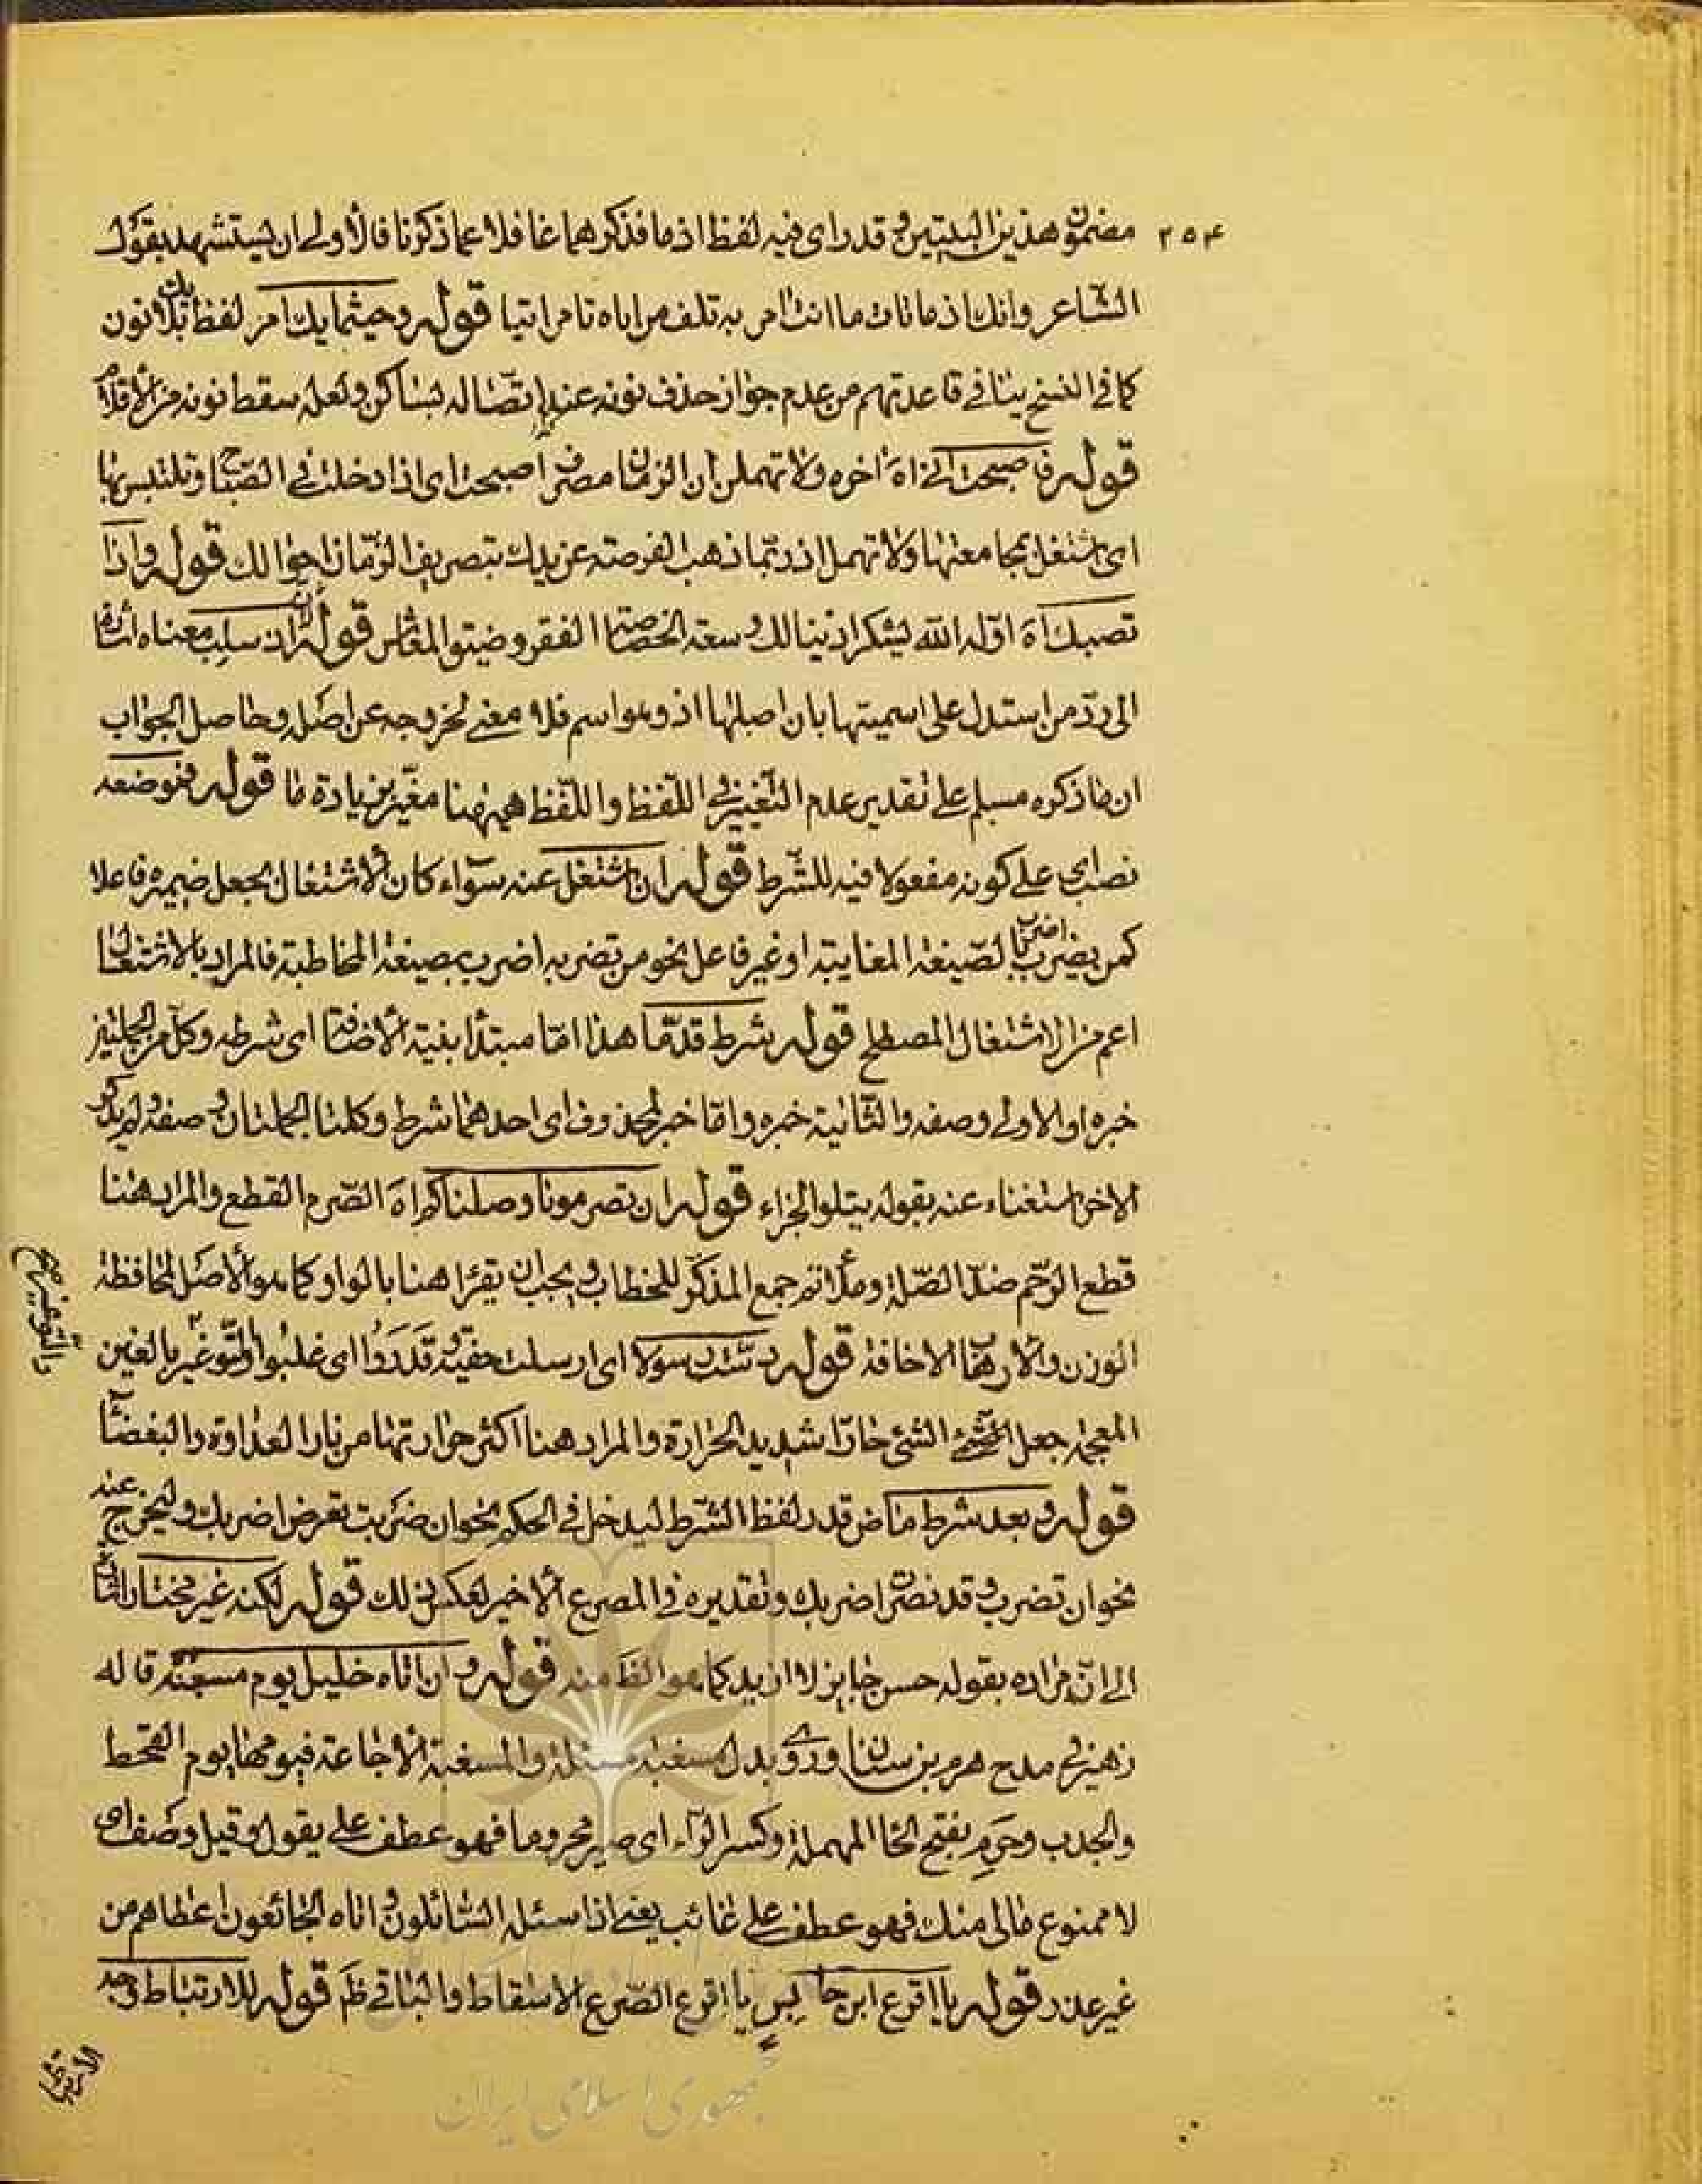 ٢٥٤ مضمون هذين البيتين وقد رأى فيه لفظ اذ ما فذكرهما غافلا عما ذكرنا فالأولى ان يستشهد بقول
الشاعر وانك اذ ما تات ما انت امر به تلف من اياه تامر اتيا قوله وحيثما يك امر لفظ يك بلا نون
كما في النسخ ينافي قاعدتهم من عدم جواز حذف نونه عند اتصاله بساكن ولعله سقط نونه من الأقلام
قوله فاصبحت انى اه اخره ولا تهملن ان الزمان مصرف اصبحت اى اذا دخلت في الصباح وتلتبس بها
اى اشتغل بمجامعتها ولا تهمل اذ ربما ذهب الفرصة عن يدك بتصريف الزمان احوالك قوله واذا
تصبك اه اوله الله يشكر اذ ينالك وسعة الخصاصة الفقر وضيق المعاش قوله لان سلب معناه اشارة
الى رد من استدل على اسميتها بان اصلها اذ وهو اسم فلا مغنى لخروجه عن اصله وحاصل الجواب
ان ما ذكره مسلم على تقدير عدم التغيير في اللفظ واللفظ هيهنا مغير بزيادة ما قوله فموضعه
نصب اى على كونه مفعولا فيه للشرط قوله ان اشتغل عنه سواء كان الاشتغال بجعل ضميره فاعلا
كمن يضرب اضرب بالصيغة المغايبة او غير فاعل نحو من تضربه اضرب بصيغة المخاطبة فالمراد بالاشتغال
اعم من الاشتغال المصطلح قوله شرط قدما هذا اما مبتدا بنية الأضافة اى شرطه وكل من الجملتين
خبره او الاولى وصفه والثانية خبره واما خبر لمحذوف اى احدهما شرط وكلتا الجملتان صفة ولم يذكر
الاخر استغناء عنه بقوله يتلو الجزاء قوله ان تصرمونا وصلناكم اه الصرم القطع والمراد هنا
قطع الرحم ضد الصلة وملاتم جمع المذكر للخطاب ويجب ان يقرا هنا بالواو كما هو الأصل لمحافظة
الوزن والارهاب الاخافة قوله دست رسولا اى ارسلت خفية وقدروا اى غلبوا والتوغير بالغين
المعجمة جعل الشخص الشئ حارا شديد الحرارة والمراد هنا اكثر حرارتها من نار العداوة والبغضاء
قوله وبعد شرط ماض قدر لفظ الشرط ليدخل في الحكم نحو ان ضربت تعرض اضربك وليخرج عنه
نحو ان تضرب وقد نصرت اضربك وتقديره في المصرع الأخير لعكس ذلك قوله لكنه غير مختار اشارة
الى ان مراده بقوله حسن جايز لا ازيد كما هو الظ منه قوله وان اتاه خليل يوم مسغبة قاله
زهير في مدح هرم بن سنان وروى بدل مسغبة مسئلة والمسغبة الأجاعة فيومها يوم القحط
والجدب وحرم بفتح الحا المهملة وكسر الراء اى صير محروما فهو عطف على يقول وقيل وصف اى
لا ممنوع مالى منك فهو عطف على غائب يعنى اذا سئله السائلون و اتاه الجائعون اعطاهم من
غير عذر قوله يا اقرع ابن حابس يا اقرع الصرع الاسقاط والباقي ظ قوله للارتباط وجه
والتوغير صح
جمهوری اسلامی ایران